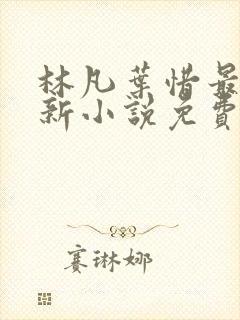 林凡葉惜最
新小說免費
賽琳娜